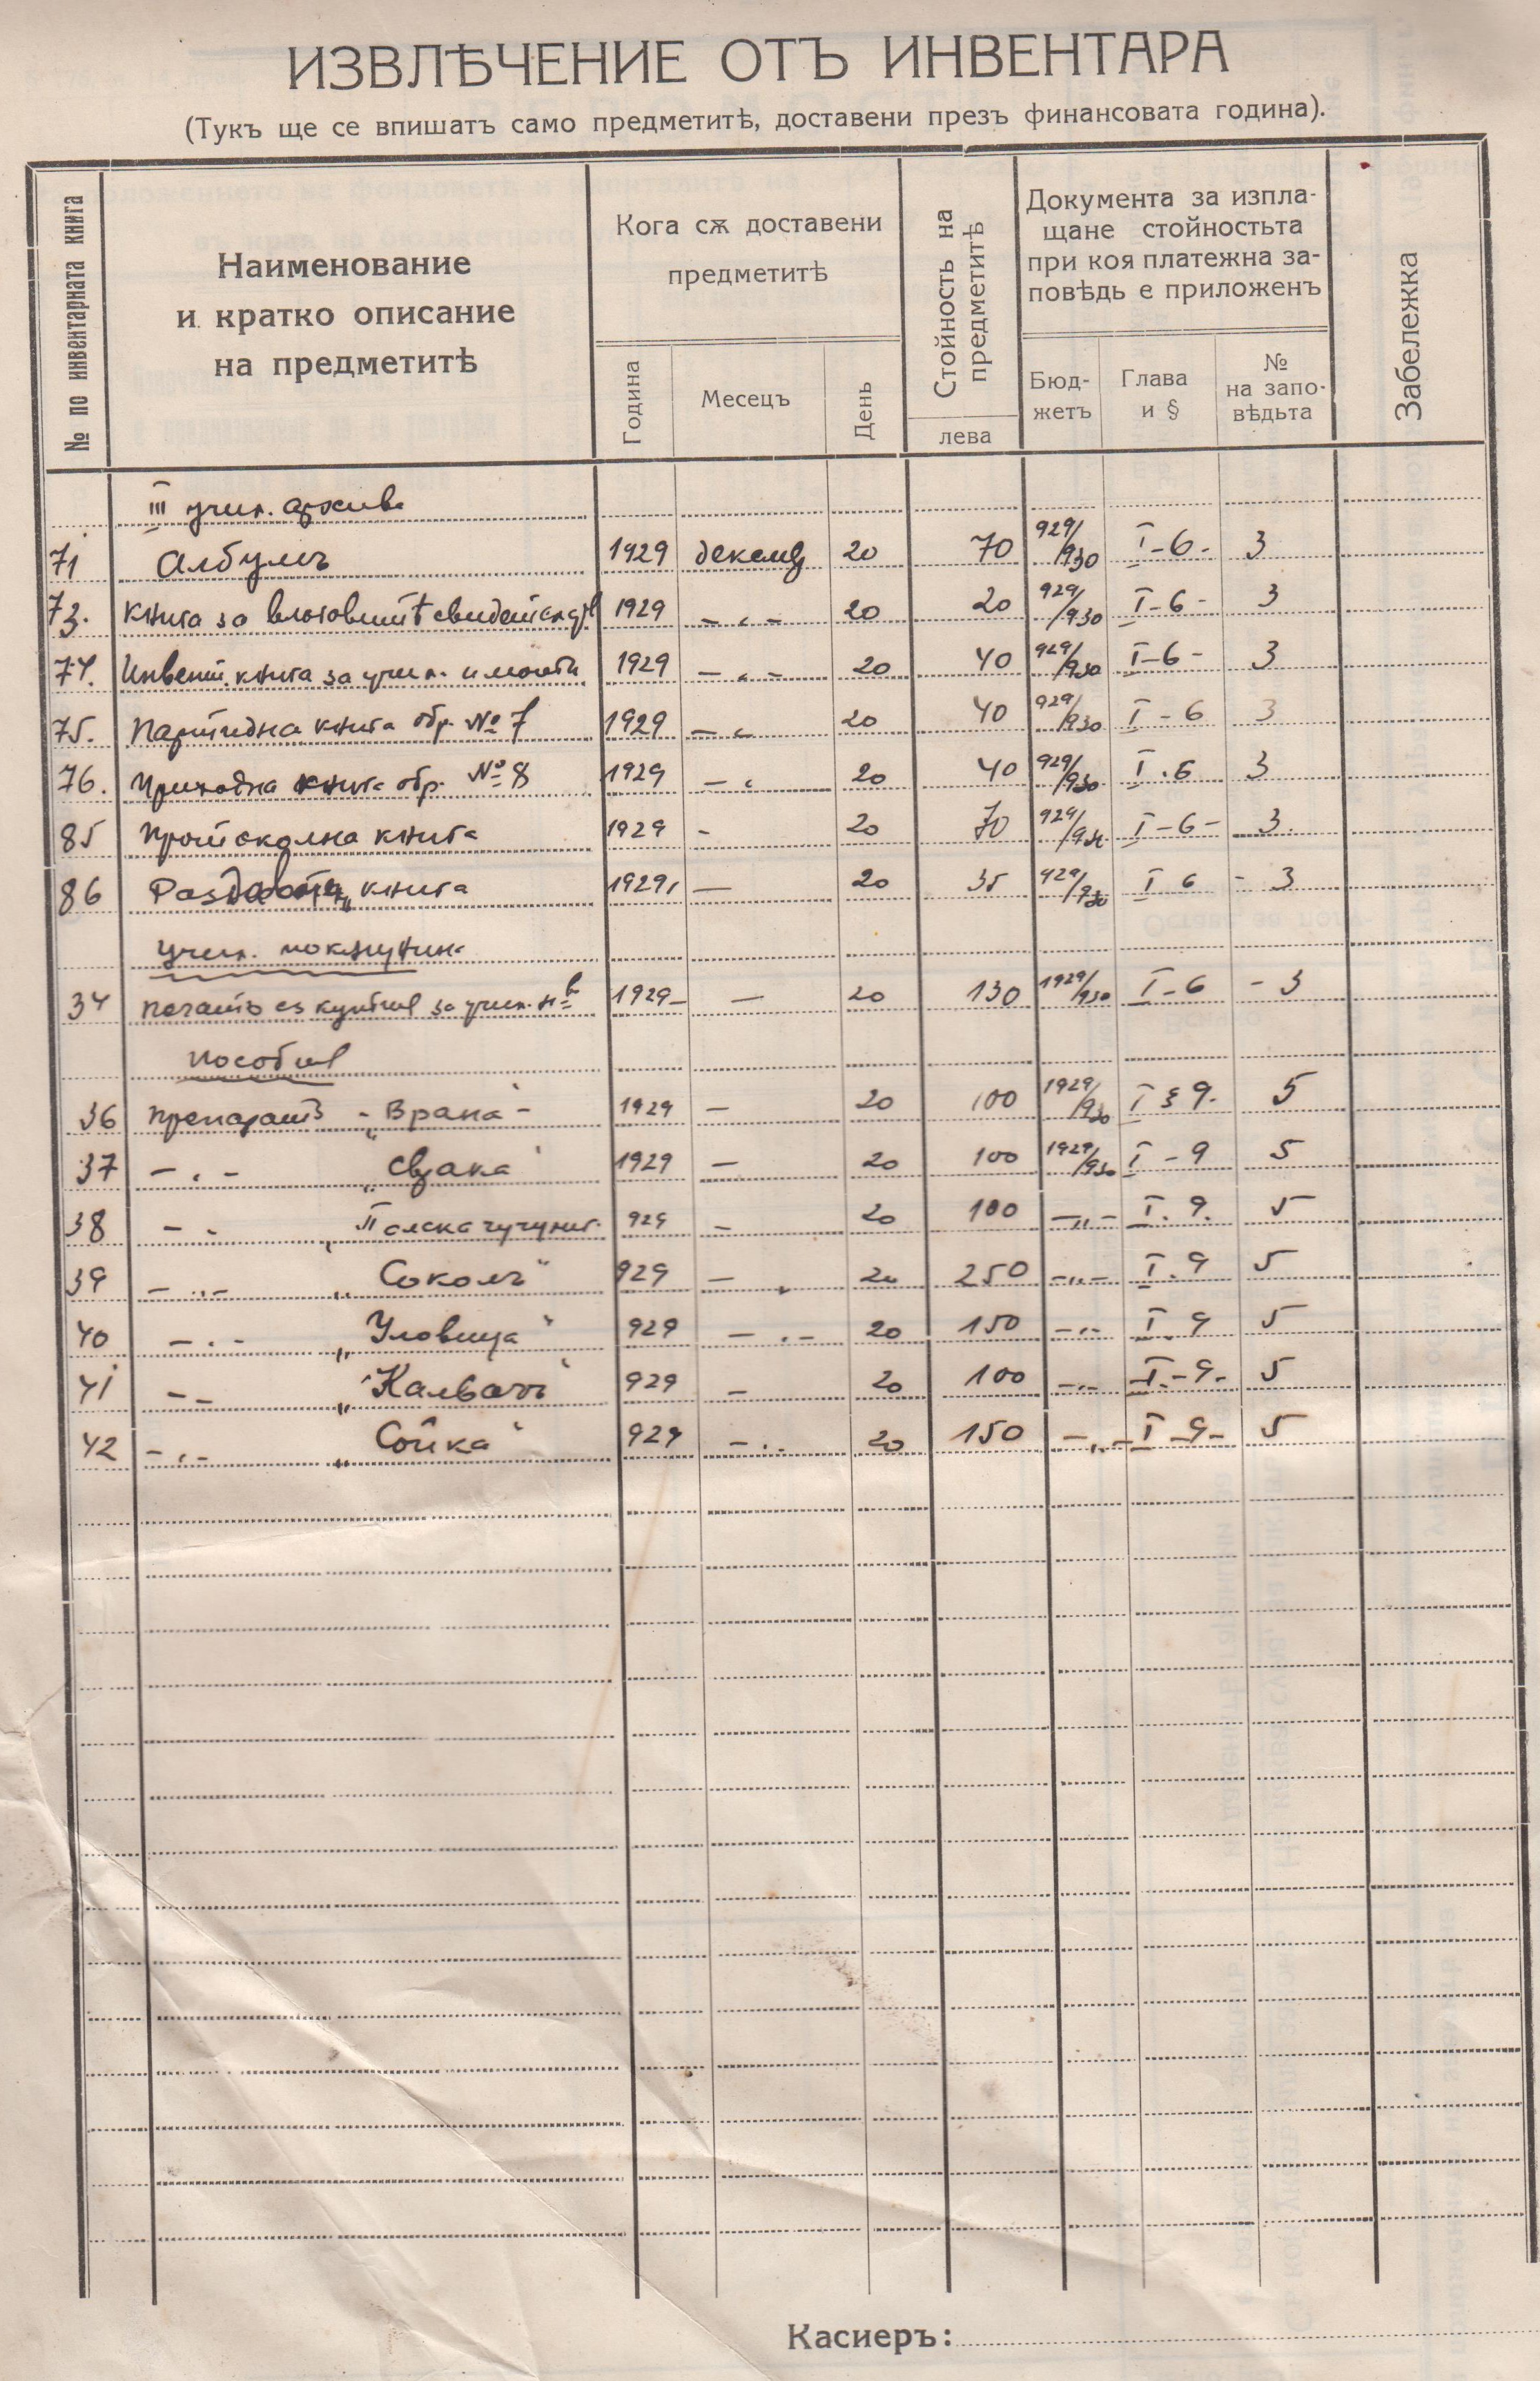 ИЗВЛѢЧЕНИЕ ОТЪ ИНВЕНТАРА
(Тукъ ще се впишатъ само предметитѣ, доставени презъ финансовата година).
№ по инвентарната книга
Наименование
и кратко описание
на предметитѣ
Кога сѫ доставени
предметитѣ
Година
Месецъ
День
Стойность на
предметитѣ
лева
Документа за изпла-
щане стойностьта
при коя платежна за-
повѣдь е приложенъ
Бюд-
жетъ
Глава
и §
№
на запо-
вѣдьта
Забележка
III учил. архива
71 Албумъ 1929 декемв 20 70 929/930 I-6- 3
73. Книга за 1929 - „ - 20 20 929/930 I-6- 3
74. Инвент. книга за учил. имоти 1929 - „ - 20 40 929/930 I-6- 3
75. Партидна книга обр. № 7 1929 - „ 20 40 929/930 I-6 3
76. Приходна книга обр. № 8 1929 - „ 20 40 929/930 I.6 3
85 Протоколна книга 1929 - 20 70 929/930 I-6- 3.
86 книга 1929 - 20 35 929/930 I 6 - 3
учил. покъщнина
34 печатъ съ кутия за учил. н-во 1929- - 20 130 1929/930 I-6 - 3
пособия
36 препаратъ - „Врана“ - 1929 - 20 100 1929/930 I § 9. 5
37 - „ - „Сврака“ 1929 - 20 100 1929/930 I - 9 5
38 - „ „Полска чучулиг. 929 - 20 100 - „ - I. 9. 5
39 - „ - „Соколъ“ 929 - „ 20 250 - „ - I. 9 5
40 - „ - „Уловица“ 929 - „ - 20 150 - „ - I. 9 5
41 - - „Кълвачъ“ 929 - 20 100 - „ - I.-9. 5
42 - „ - „Сойка“ 929 - „ 20 150 - „ - I-9- 5
Касиеръ: